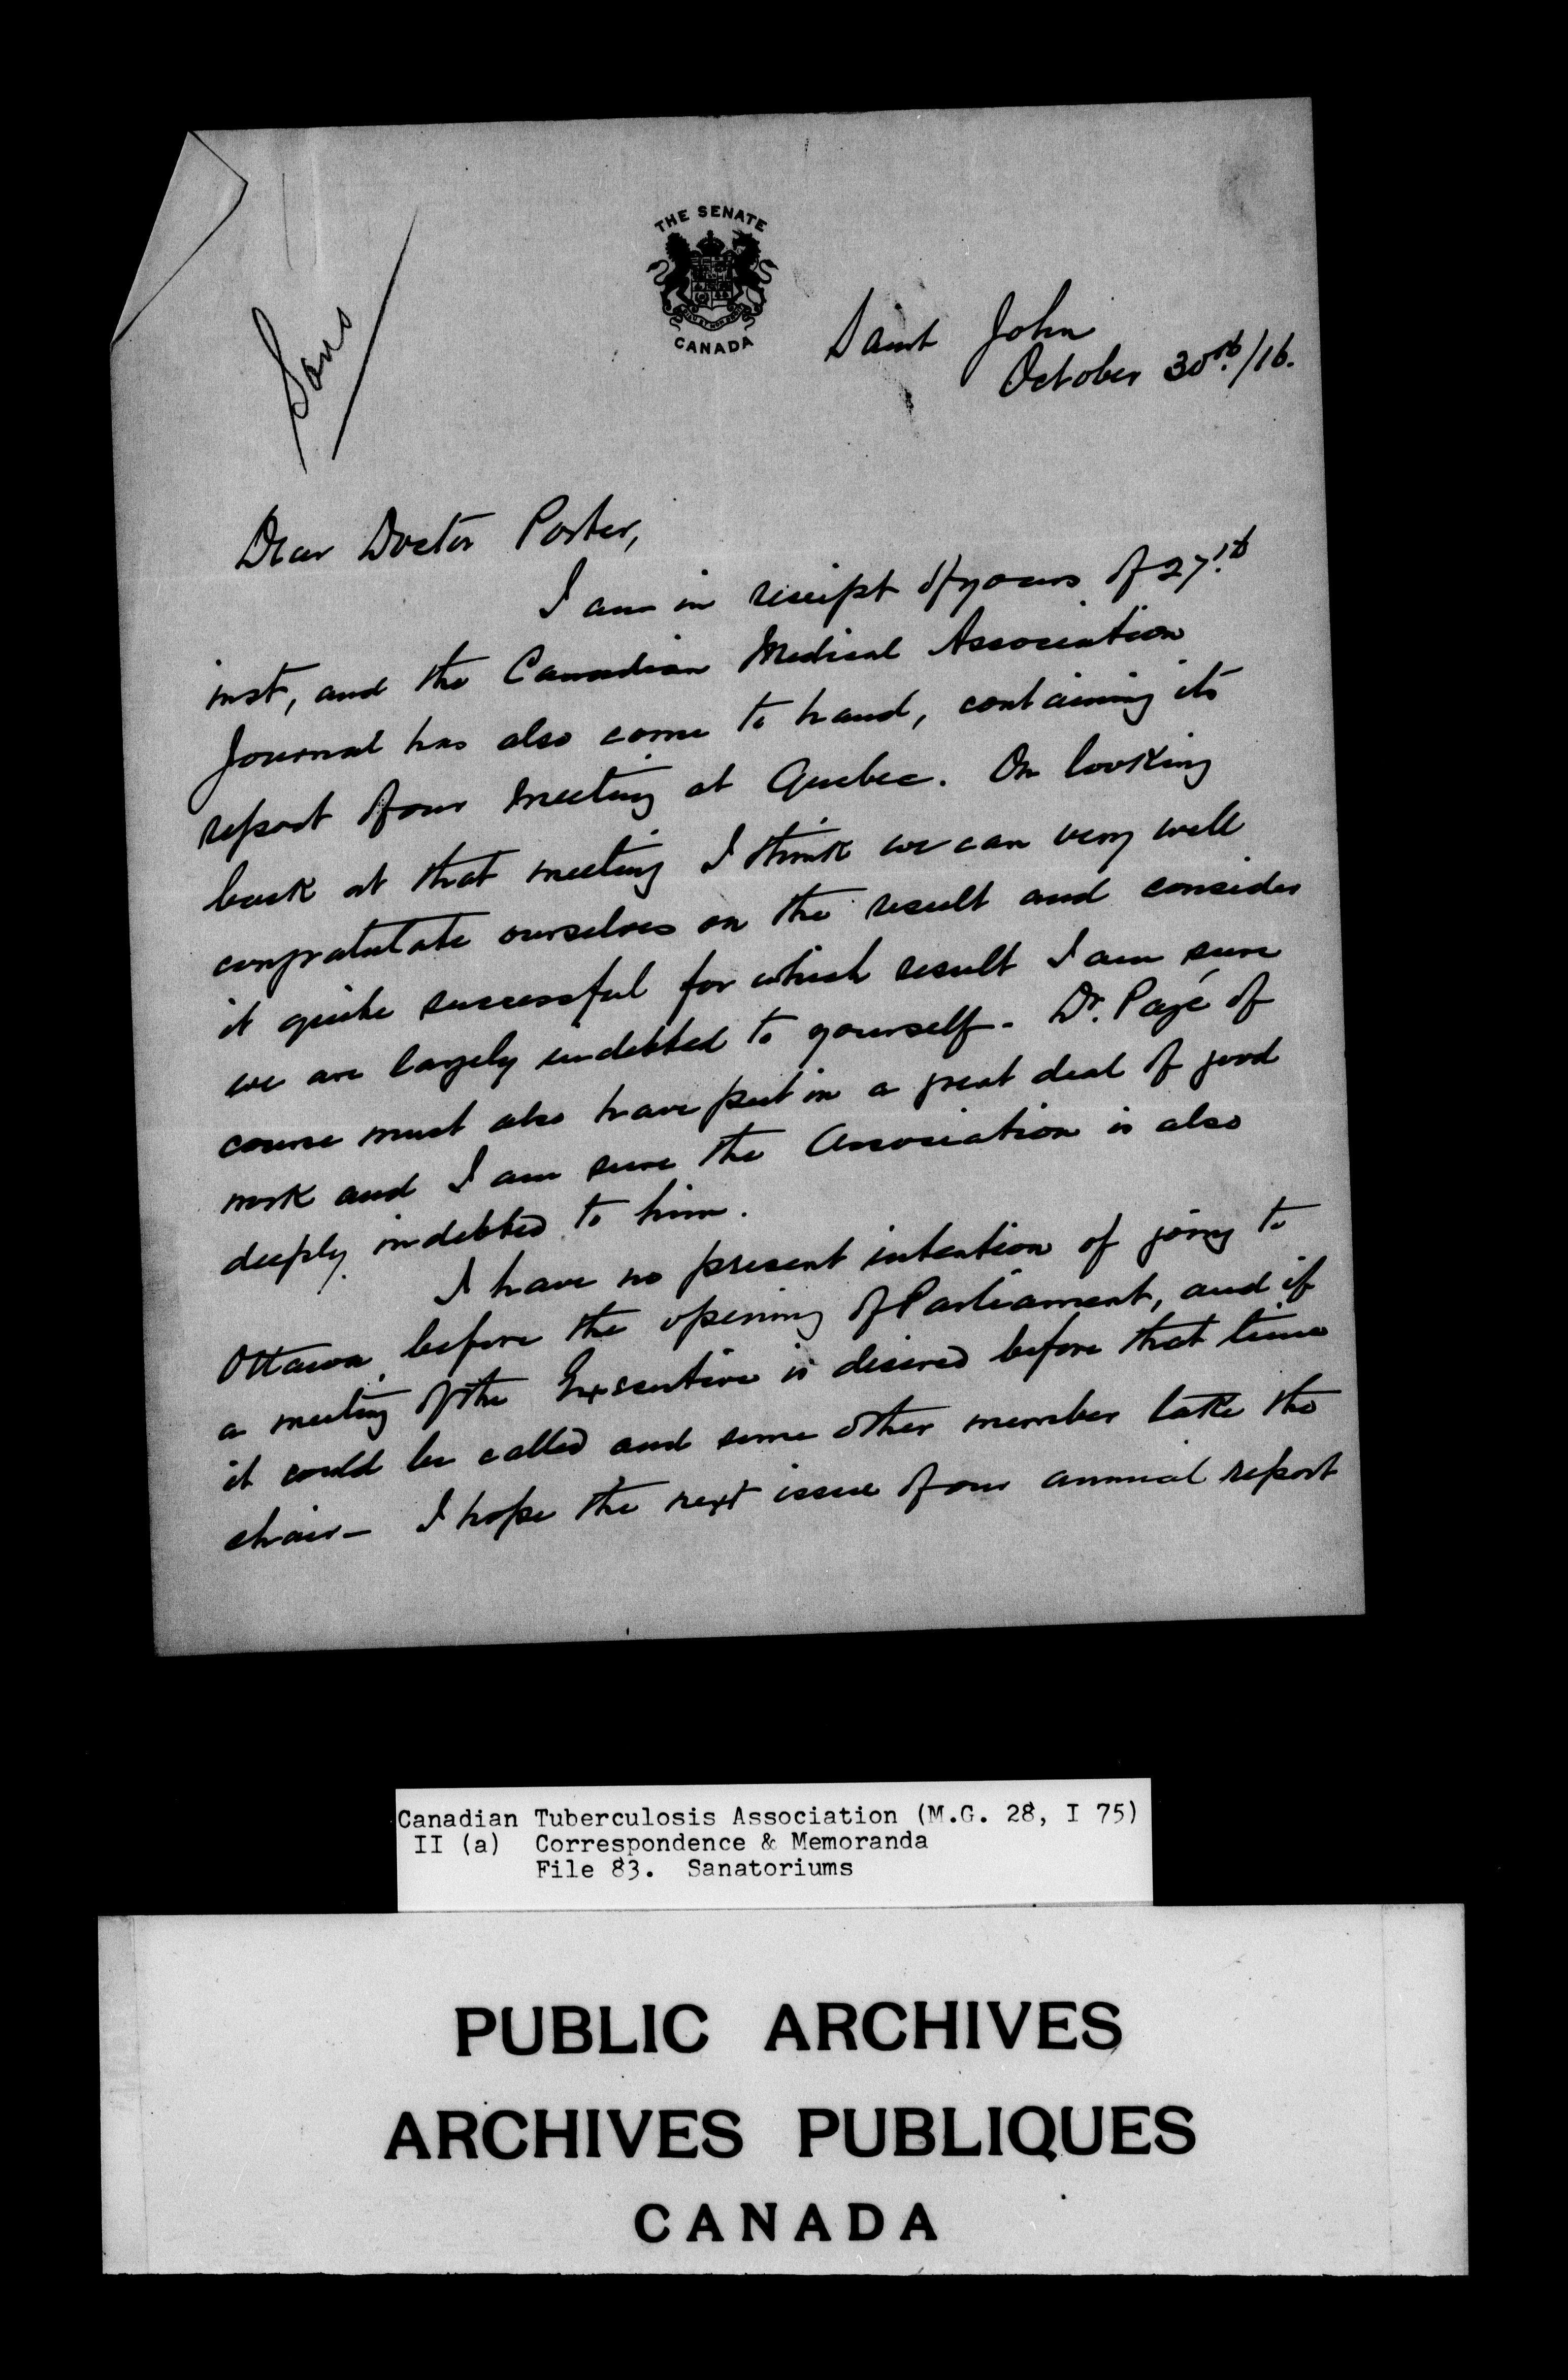 THE SENATE
CANADA
Sans
Saint John
October 30th./16.
Dear Doctor Porter,
I am in receipt of yours of 27th
inst, and the Canadian Medical Association
Journal has also come to hand, containing its
report of our meeting at Quebec. On looking
back at that meeting I think we can very well
congratulate ourselves on the result and consider
it quite successful for which result I am sure
we are largely indebted to yourself. Dr. Pagé of
course must also have put in a great deal of good
work and I am sure the Association is also
deeply indebted to him.
I have no present intention of going to
Ottawa before the opening of Parliament, and if
a meeting of the Executive is desired before that time
it could be called and some other member take the
chair - I hope the next issue of our annual report
Canadian Tuberculosis Association (M.G. 28, I 75)
II (a) Correspondence & Memoranda
File 83. Sanatoriums
PUBLIC ARCHIVES
ARCHIVES PUBLIQUES
CANADA